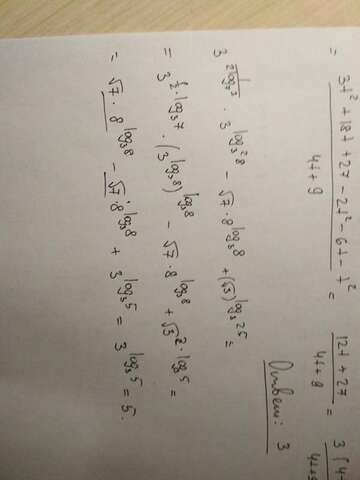 = (3t² + 18t + 27 - 2t² - 6t - t²) / (4t + 9) = (12t + 27) / (4t + 9) = 3(4
Ответ: 3
3^(1/(2log₇3)) · 3^(log₃²8) - √7 · 8^(log₃8) + (√3)^(log₃25) =
= 3^(½·log₃7) · (3^(log₃8))^(log₃8) - √7 · 8^(log₃8) + √3^(2·log₃5) =
= √7 · 8^(log₃8) - √7 · 8^(log₃8) + 3^(log₃5) = 3^(log₃5) = 5.